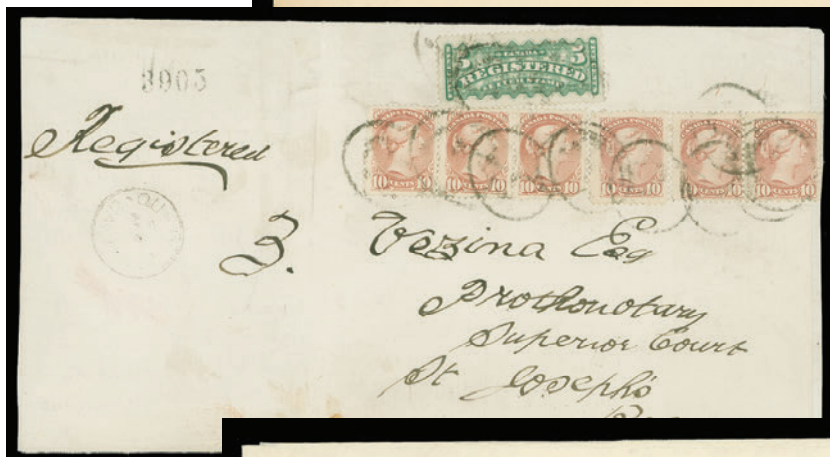 CANADA
5 REGISTERED 5
3905
Registered
10 CENTS 10
10 CENTS 10
10 CENTS 10
10 CENTS 10
10 CENTS 10
10 CENTS 10
Z. Vezina Esq
Prothonotary
Superior Court
St Joseph's